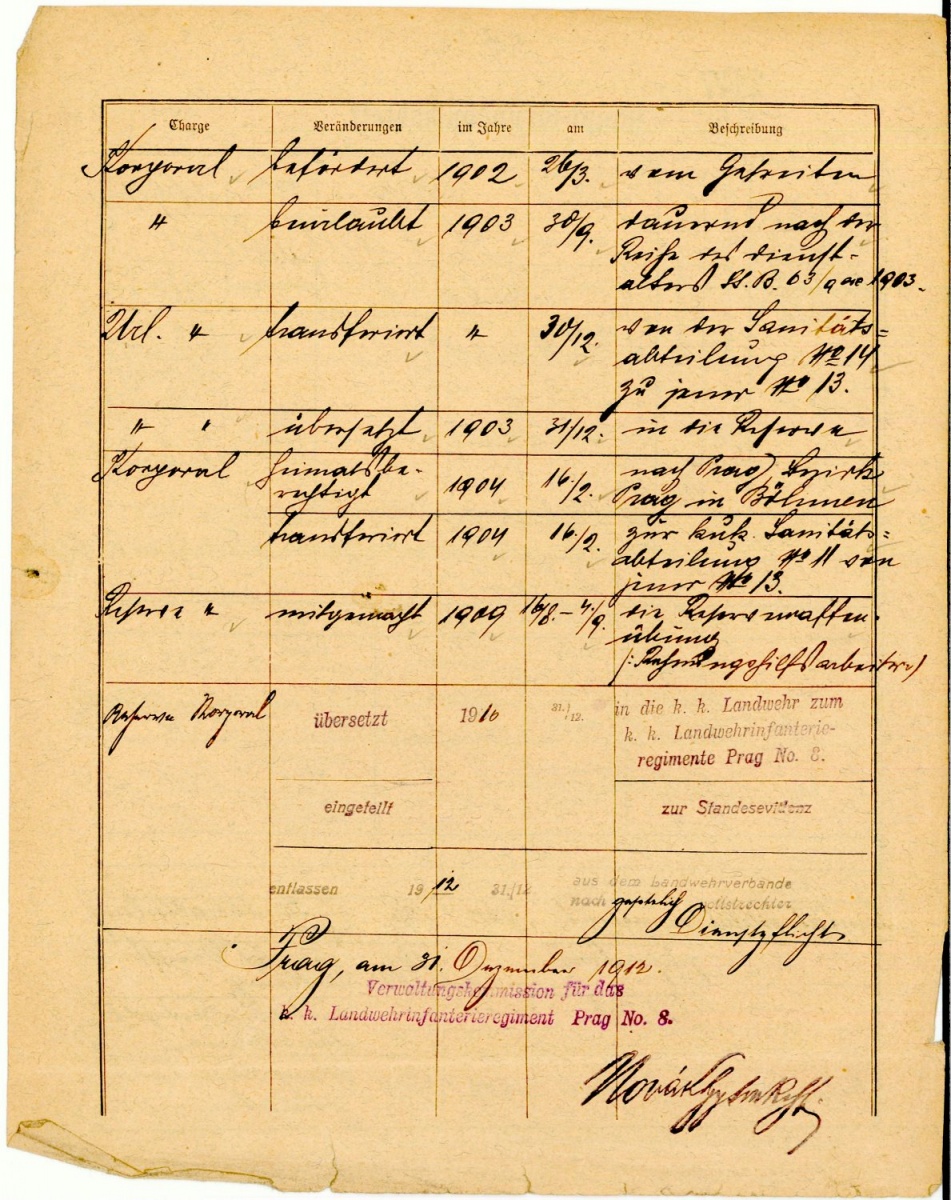 Charge Veränderungen im Jahre am Beschreibung
Korporal befördert 1902 26/3. vom Gefreiten
" beurlaubt 1903 30/9. dauernd nach der
Reihe des Dienst-
alters St.B. 63/9 1903.
Url. " transferiert " 30/12. von der Sanitäts=
abteilung No 14
zu jener No 13.
" " übersetzt 1903 31/12. in die Reserve
Korporal heimatsbe-
rechtigt 1904 16/2. nach Prag, Bezirk
Prag in Böhmen
transferiert 1904 16/2. zur kuk. Sanitäts=
abteilung No 11 von
jener No 13.
Reserve " mitgemacht 1909 16/8.–4./9. die Reservewaffen-
übung
(: Rechnungshilfsarbeiter :)
Reserve Korporal übersetzt 1910 31./12. in die k. k. Landwehr zum
k. k. Landwehrinfanterie-
regimente Prag No. 8.
eingeteilt zur Standesevidenz
entlassen 1912 31./12 aus dem Landwehrverbande
nach gesetzlich vollstreckter
Dienstpflicht
Prag, am 31. Dezember 1912.
Verwaltungskommission für das
k. k. Landwehrinfanterieregiment Prag No. 8.
Novák